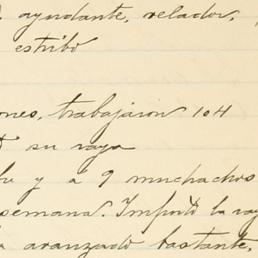 ayudante, velador,
estribó
ones, trabajaron 104
su raya
y a 9 muchachos
semana. Importó la ray
a avanzado bastante,